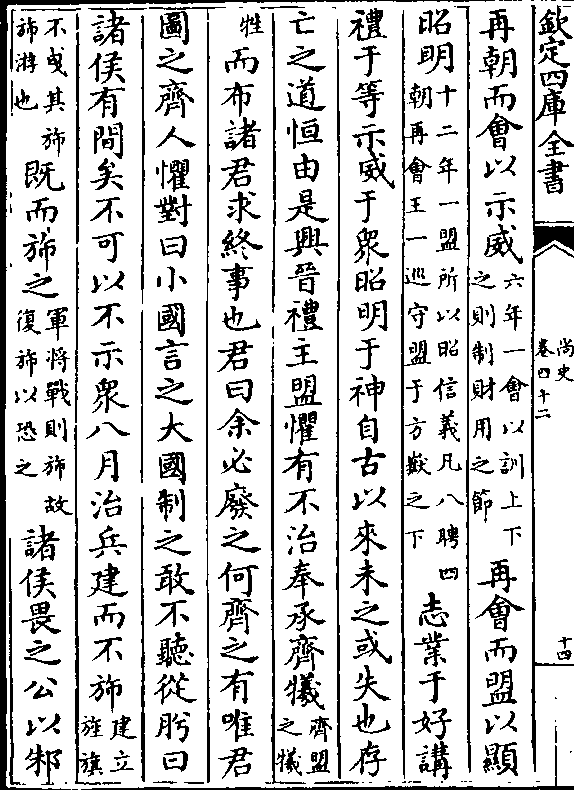 欽定四庫全書
尚史
卷四十二
十四
再朝而會以示威六年一會以訓上下之則制財用之節再會而盟以顯
昭明十二年一盟所以昭信義凡八聘四朝再會王一巡守盟于方嶽之下志業于好講
禮于等示威于衆昭明于神自古以來未之或失也存
亡之道恒由是興晉禮主盟懼有不治奉承齊犧齊盟之犧
牲而布諸君求終事也君曰余必廢之何齊之有唯君
圖之齊人懼對曰小國言之大國制之敢不聽從肸曰
諸侯有間矣不可以不示衆八月治兵建而不斾建立旌旗
不曳其斾斾游也既而斾之軍將戰則斾故復斾以恐之諸侯畏之公以邾